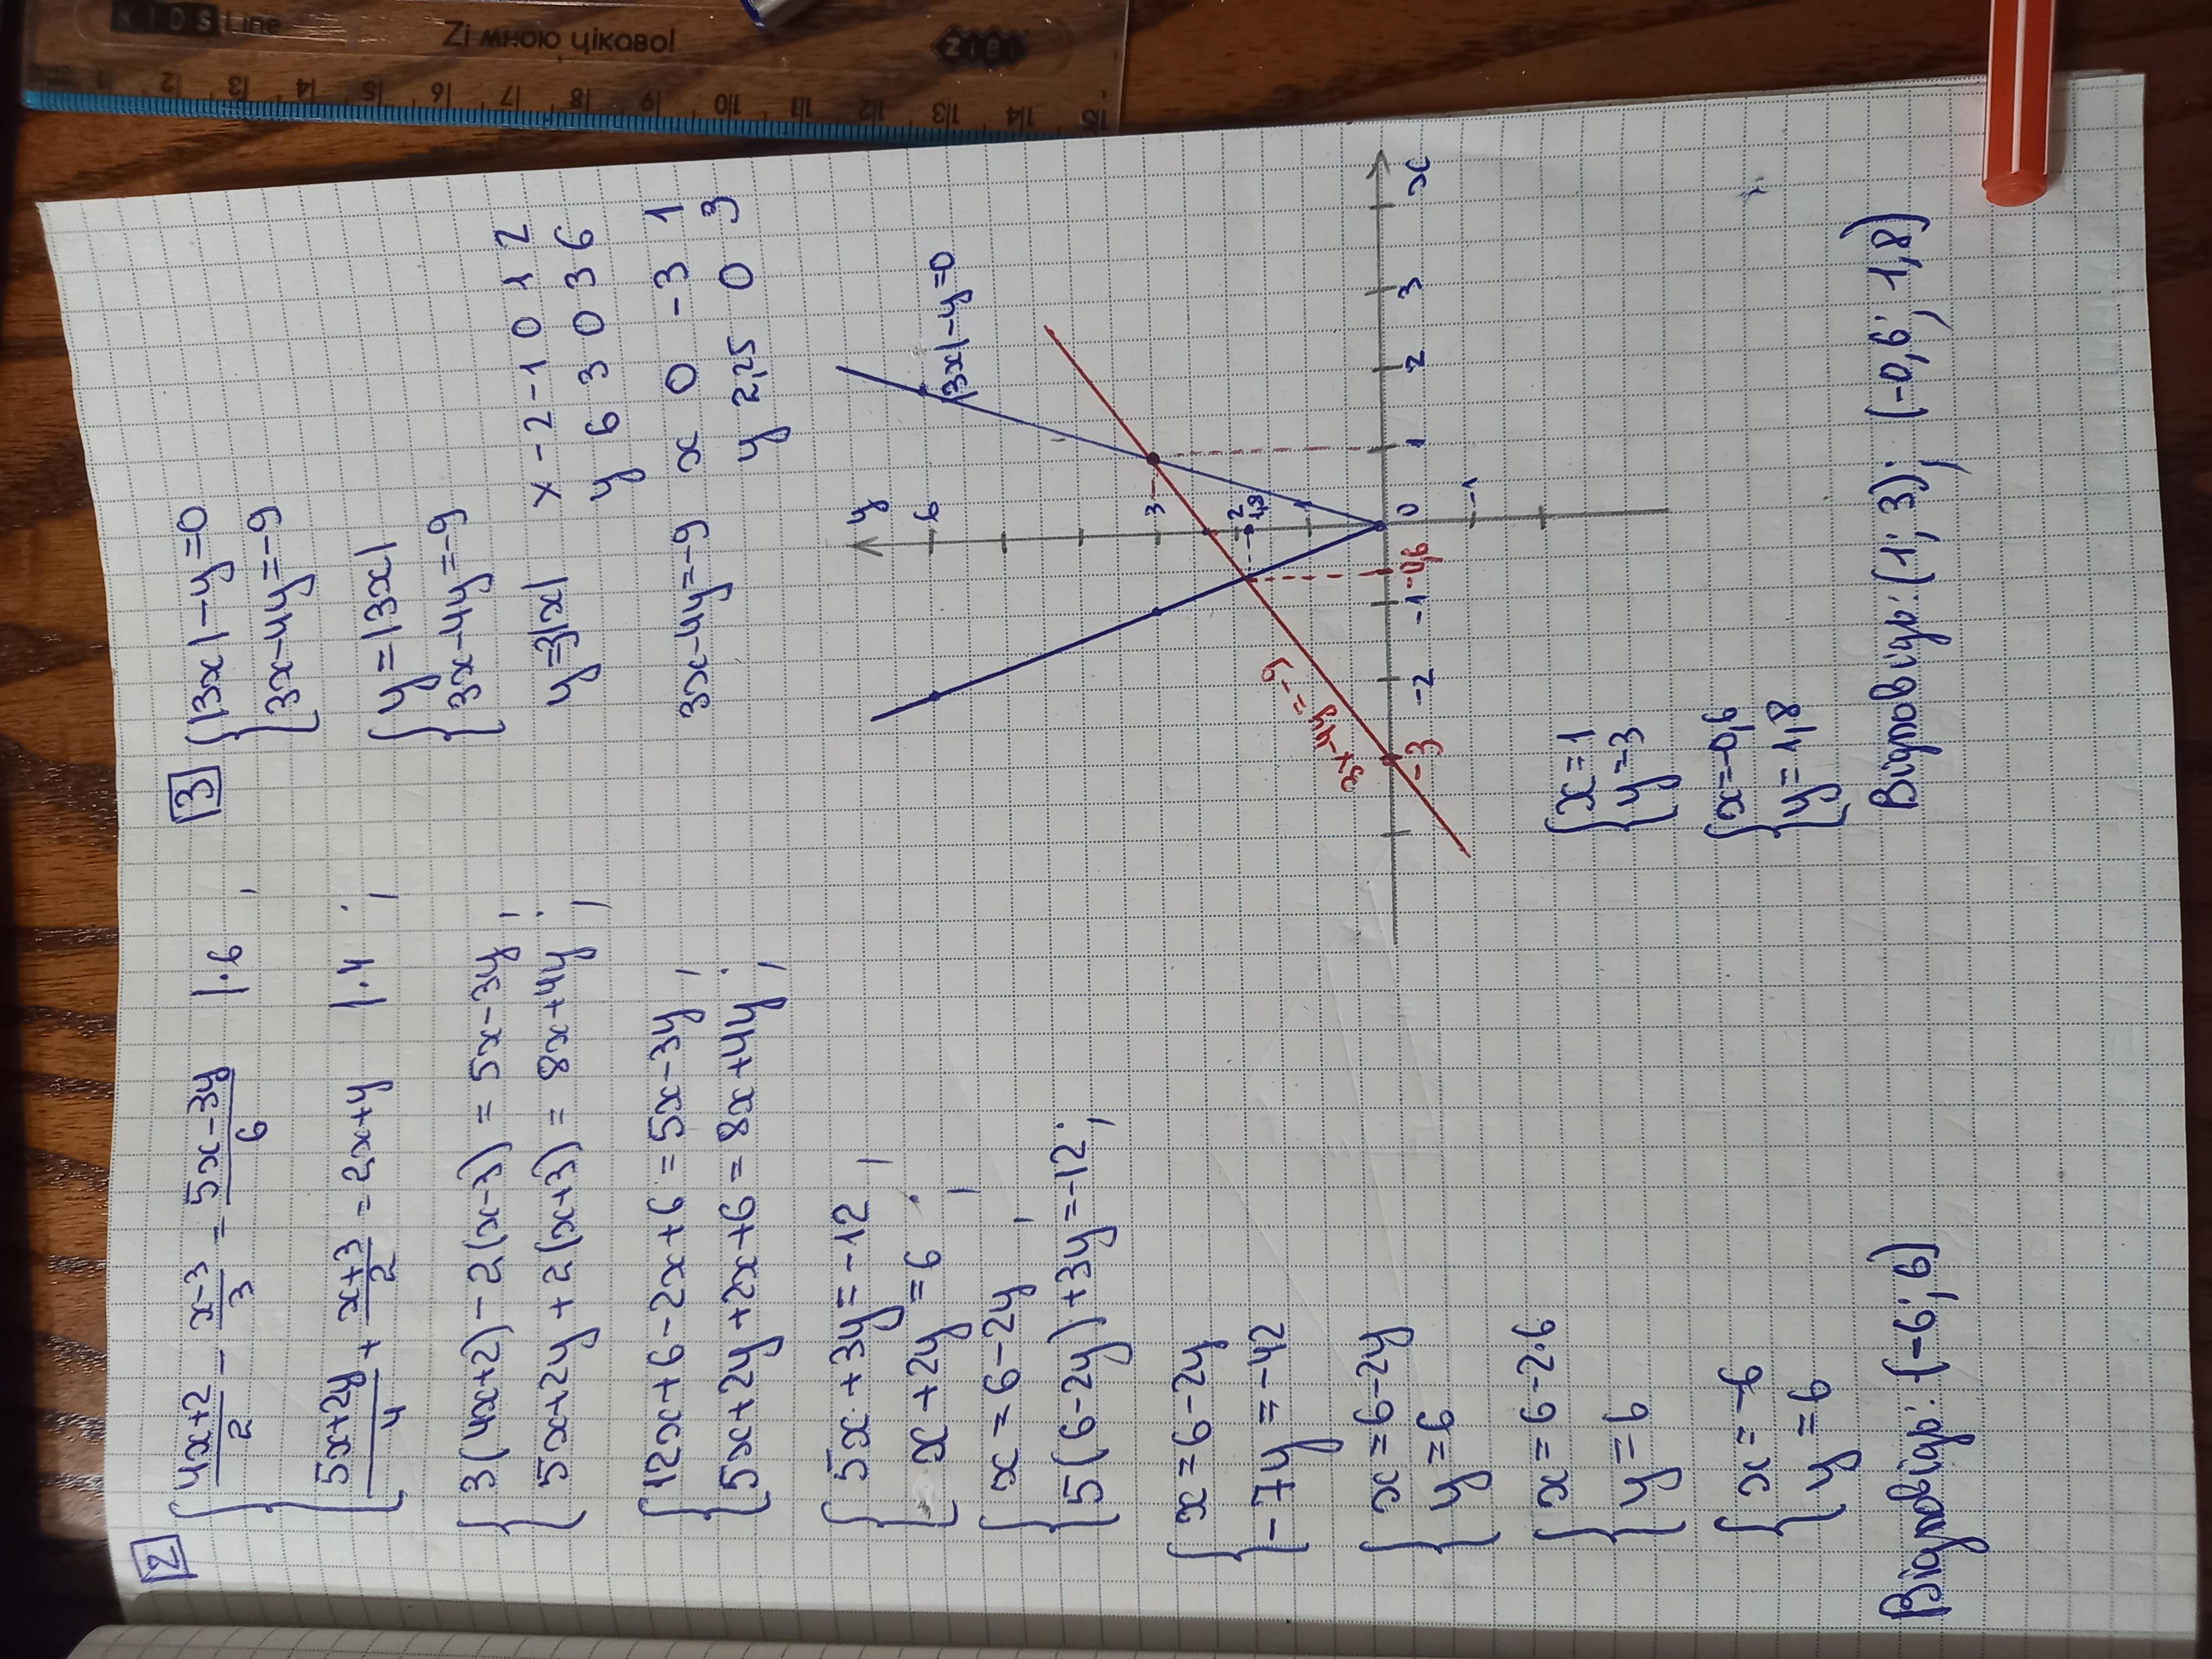 KIDS Line Zi мною цікаво! ZiBi
1 2 3 4 5 6 7 8 9 10 11 12 13 14 15
2
{ (4x+2)/2 - (x-3)/3 = (5x-3y)/6 |·6 ;
(5x+2y)/4 + (x+3)/2 = 2x+y |·4 ;
{ 3(4x+2) - 2(x-3) = 5x-3y ;
5x+2y + 2(x+3) = 8x+4y ;
{ 12x+6-2x+6 = 5x-3y ;
5x+2y+2x+6 = 8x+4y ;
{ 5x+3y=-12 ;
x+2y=6 ;
{ x=6-2y ;
5(6-2y)+3y=-12 ;
{ x=6-2y
-7y=-42
{ x=6-2y
y=6
{ x=6-2·6
y=6
{ x=-6
y=6
Відповідь: (-6; 6)
3
{ |3x|-y=0
3x-4y=-9
{ y=|3x|
3x-4y=-9
y=3|x| x -2 -1 0 1 2
y 6 3 0 3 6
3x-4y=-9 x 0 -3 1
y 2,25 0 3
y
6
|3x|-y=0
3
2
1,8
3x-4y=-9
-3 -2 -1 -0,6 0 1 2 3 x
-1
{ x=1
y=3
{ x=-0,6
y=1,8
Відповідь: (1; 3); (-0,6; 1,8)